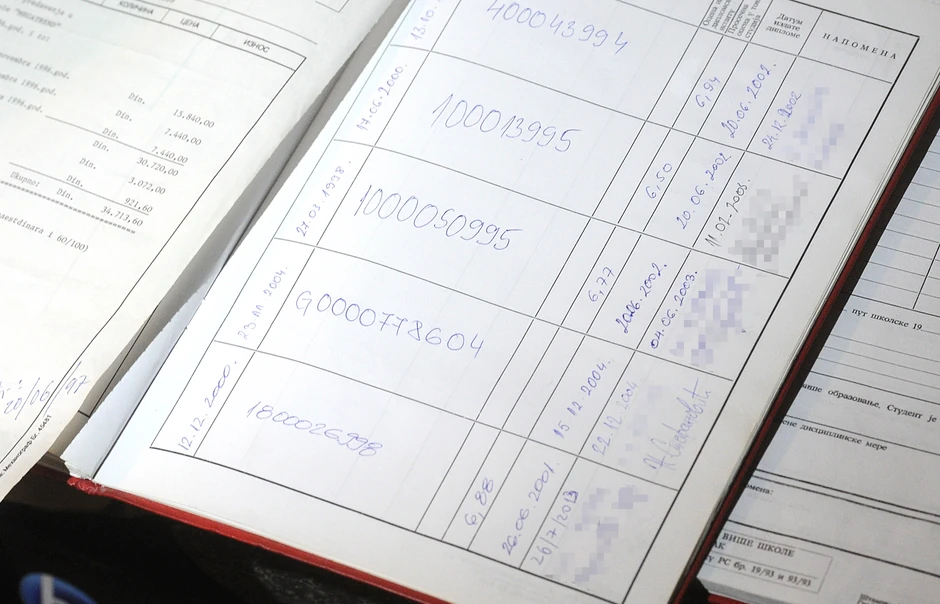 КОЛИЧИНА ЦЕНА ИЗНОС
Din. 15.840,00
Din. 7.440,00
Din. 7.440,00
Din. 30.720,00
Din. 3.072,00
Din. 921,60
Ukupno: Din. 34.713,60
i 60/100)
20/06/97
Датум
издате
дипломе
НАПОМЕНА
13.10.
400043994
6,94
20.06.2002.
24.IX.2002
17.06.2000.
100013995
6,50
20.06.2002.
11.02.2005.
27.03.1998
1000050995
6,77
2006.2002.
04.06.2003.
23 ЈАП 2004.
G0000778604
15 12 2004.
22.12.2004
12.12.2000.
1800026998
6,88
26.06.2001.
26/7/2013
пут школске 19
више образовање, Студент је
дисциплинске мере
ВИШЕ ШКОЛЕ
РС бр. 19/93 и 93/93